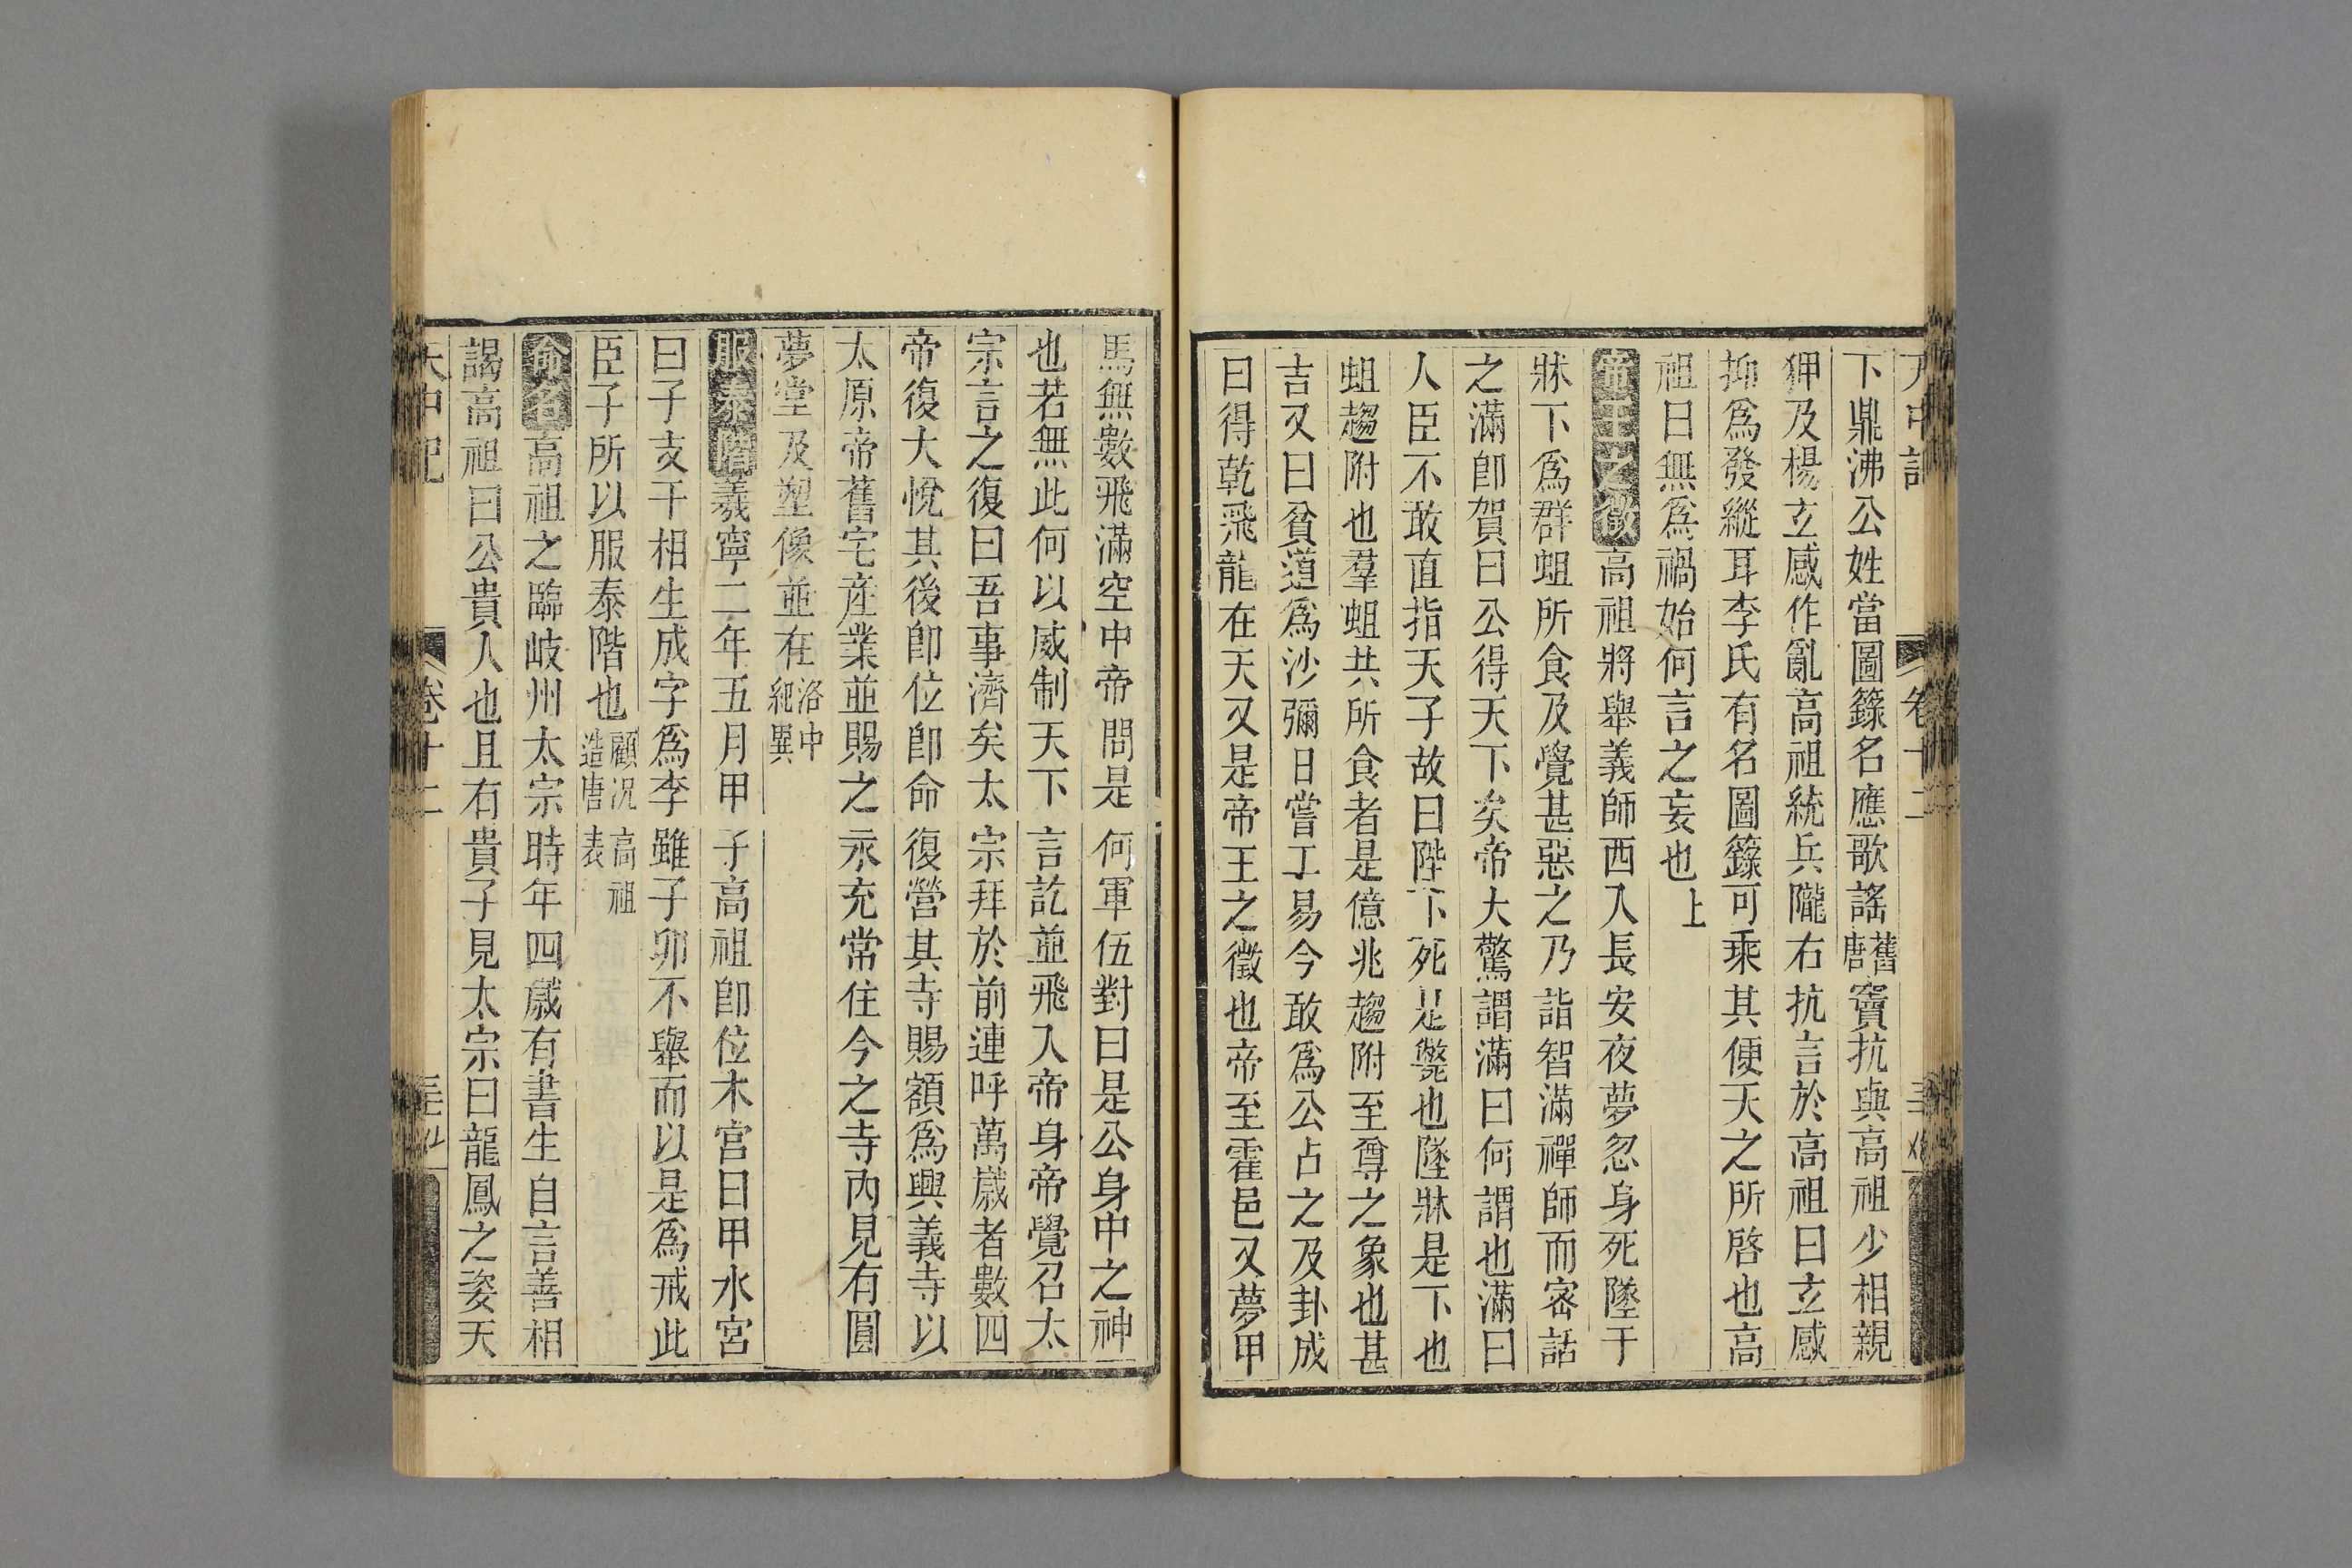 下鼎沸公姓當圖籙名應歌謠舊唐竇抗與高祖少相親
狎及楊玄感作亂高祖統兵隴右抗言於高祖曰玄感
抑爲發縱耳李氏有名圖籙可乘其便天之所啓也高
祖曰無爲禍始何言之妄也上
帝王之徵高祖將舉義師西入長安夜夢忽身死墜于
牀下爲群蛆所食及覺甚惡之乃詣智滿禪師而密話
之滿卽賀曰公得天下矣帝大驚謂滿曰何謂也滿曰
人臣不敢直指天子故曰陛下死是斃也墜牀是下也
蛆趨附也羣蛆共所食者是億兆趨附至尊之象也甚
吉又曰貧道爲沙彌日嘗工易今敢爲公占之及卦成
曰得乾飛龍在天又是帝王之徵也帝至霍邑又夢甲
馬無數飛滿空中帝問是何軍伍對曰是公身中之神
也若無此何以威制天下言訖並飛入帝身帝覺召太
宗言之復曰吾事濟矣太宗拜於前連呼萬歲者數四
帝復大悅其後卽位卽命復營其寺賜額爲興義寺以
太原帝舊宅産業並賜之永充常住今之寺內見有圓
夢堂及塑像並在洛中紀異
服泰階義寧二年五月甲子高祖卽位木宮曰甲水宮
曰子支干相生成字爲李雖子卯不舉而以是爲戒此
臣子所以服泰階也顧況造唐高祖表
命名高祖之臨岐州太宗時年四歲有書生自言善相
謁高祖曰公貴人也且有貴子見太宗曰龍鳳之姿天
天中記 卷十二